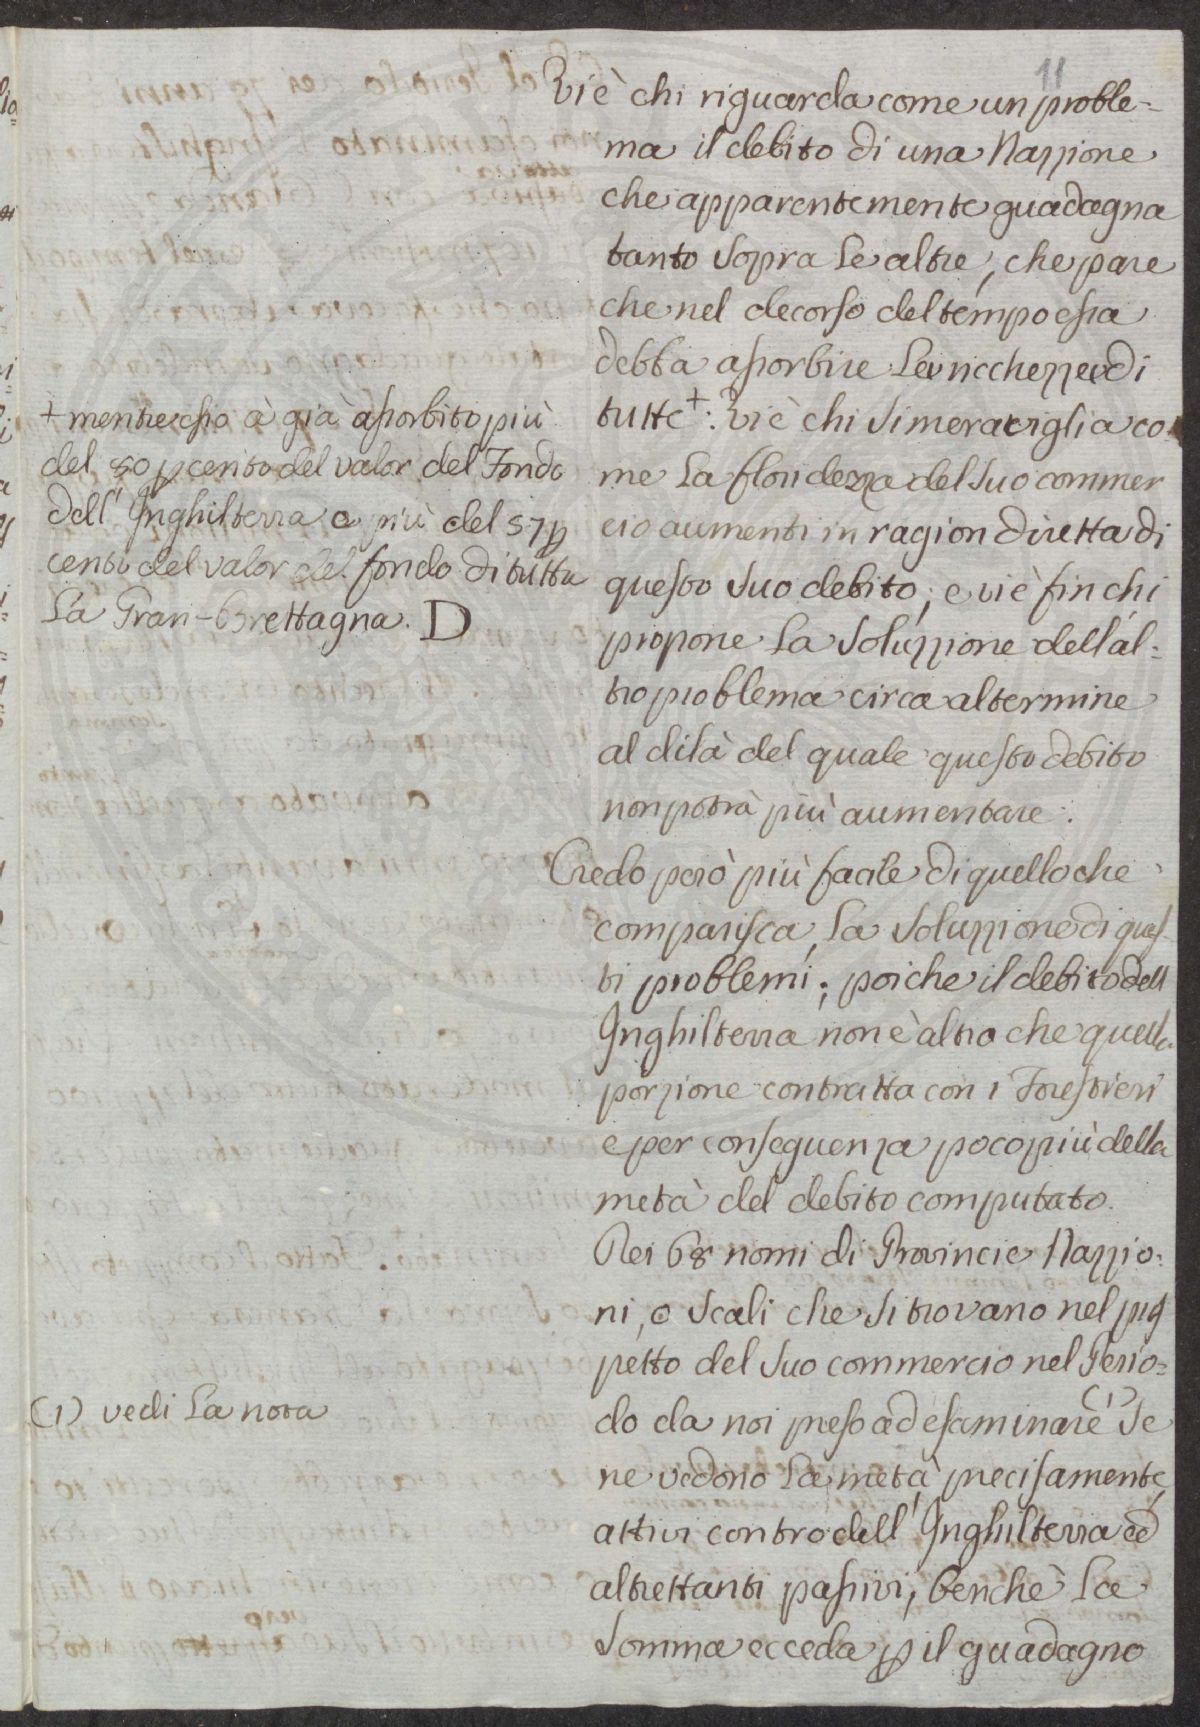 11
Vi è chi riguarda come un proble=
ma il debito di una Nazzione
che apparentemente guadagna
tanto sopra le altre, che pare
che nel decorso del tempo essa
debba assorbire le ricchezze di
tutte+: Vi è chi si meraviglia co
me la floridezza del suo commer
cio aumenti in ragion diretta di
questo suo debito; e vi è fin chi
propone la soluzzione dell'al=
tro problema circa al termine
al di là del quale questo debito
non potrà più aumentare.
Credo però più facile di quello che
comparisca, la soluzzione di ques=
ti problemi; poiche il debito dell
Inghilterra non è altro che quella
porzione contratta con i Forestieri
e per conseguenza poco più della
metà del debito computato.
Nei 68 nomi di Provincie Nazzio=
ni, o Scali che si trovano nel pros
petto del suo commercio nel Perio=
do da noi preso ad esaminare (1) se
ne vedono la metà precisamente
attivi contro dell'Inghilterra ed
altrettanti passivi, benchè la
somma ecceda p il guadagno
+ mentre essa à già assorbito più
del 50 p cento del valor del Fondo
dell'Inghilterra e più del 57 p
cento del valor del fondo di tutta
la Gran-Brettagna. D
(1) vedi la nota